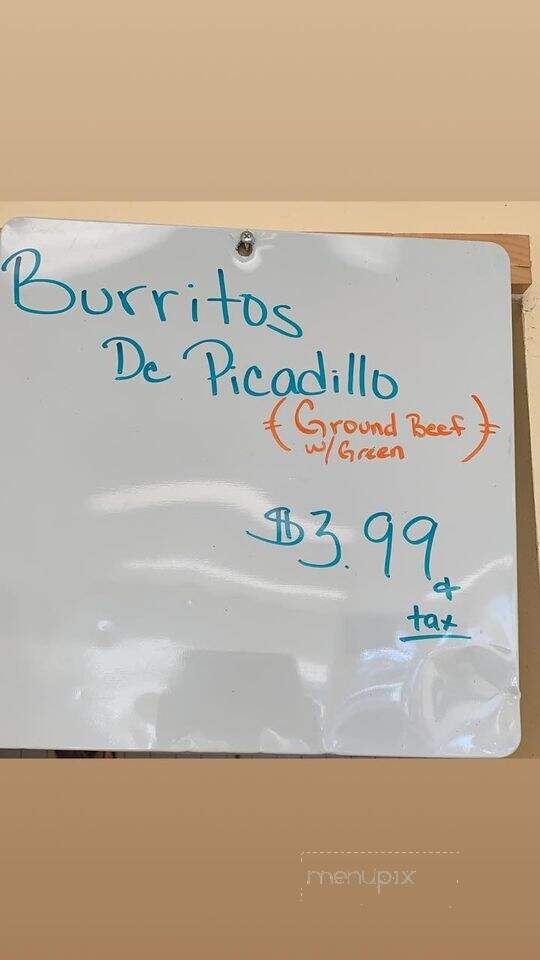 Burritos
De Picadillo
(Ground Beef
w/Green)
$3.99
+
tax
menupix